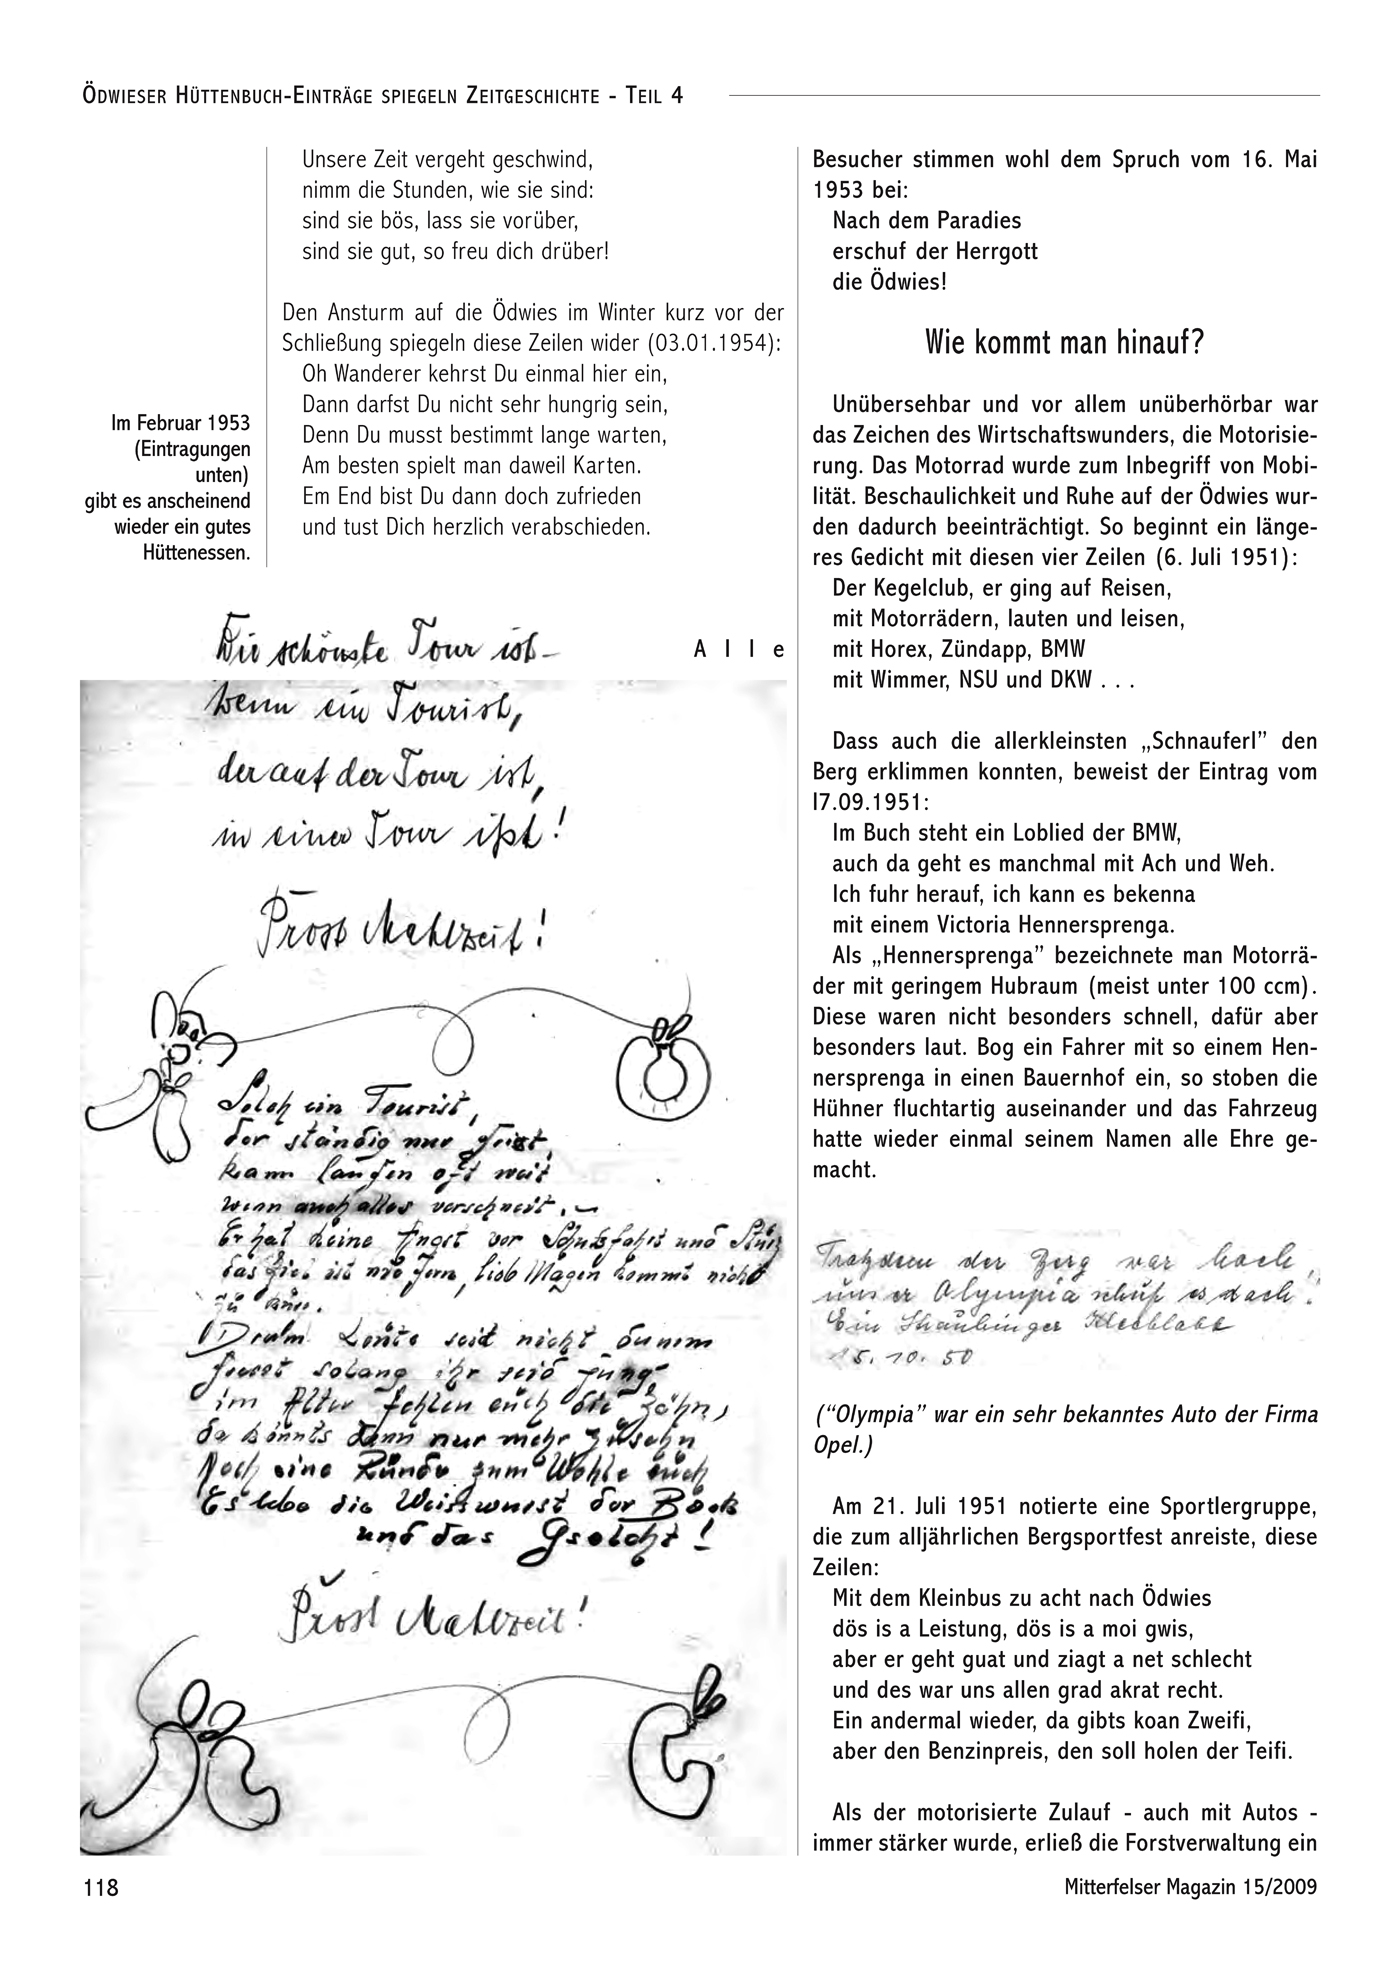 ÖDWIESER HÜTTENBUCH-EINTRÄGE SPIEGELN ZEITGESCHICHTE - TEIL 4
Im Februar 1953
(Eintragungen
unten)
gibt es anscheinend
wieder ein gutes
Hüttenessen.
Unsere Zeit vergeht geschwind,
nimm die Stunden, wie sie sind:
sind sie bös, lass sie vorüber,
sind sie gut, so freu dich drüber!
Den Ansturm auf die Ödwies im Winter kurz vor der
Schließung spiegeln diese Zeilen wider (03.01.1954):
Oh Wanderer kehrst Du einmal hier ein,
Dann darfst Du nicht sehr hungrig sein,
Denn Du musst bestimmt lange warten,
Am besten spielt man daweil Karten.
Em End bist Du dann doch zufrieden
und tust Dich herzlich verabschieden.
A l l e
Die schönste Tour ist
wenn ein Tourist,
der auf der Tour ist,
in einer Tour ißt!
Prost Mahlzeit!
Solch ein Tourist,
der ständig nur frißt,
kann laufen oft weit
wenn auch alles verschneit.
Er hat keine Angst vor Schußfahrt und Sturz
das Ziel ist nie fern, lieb Magen kommt nicht
zu kurz.
Drum Leute seid nicht dumm
fresst solang ihr seid jung
im Alter fehlen euch die Zähn,
da könnts dann nur mehr zusehn
Noch eine Runde zum Wohle euch
Es lebe die Weisswurst der Bock
und das Gselcht!
Prost Mahlzeit!
Besucher stimmen wohl dem Spruch vom 16. Mai
1953 bei:
Nach dem Paradies
erschuf der Herrgott
die Ödwies!
Wie kommt man hinauf?
Unübersehbar und vor allem unüberhörbar war
das Zeichen des Wirtschaftswunders, die Motorisie-
rung. Das Motorrad wurde zum Inbegriff von Mobi-
lität. Beschaulichkeit und Ruhe auf der Ödwies wur-
den dadurch beeinträchtigt. So beginnt ein länge-
res Gedicht mit diesen vier Zeilen (6. Juli 1951):
Der Kegelclub, er ging auf Reisen,
mit Motorrädern, lauten und leisen,
mit Horex, Zündapp, BMW
mit Wimmer, NSU und DKW . . .
Dass auch die allerkleinsten „Schnauferl” den
Berg erklimmen konnten, beweist der Eintrag vom
I7.09.1951:
Im Buch steht ein Loblied der BMW,
auch da geht es manchmal mit Ach und Weh.
Ich fuhr herauf, ich kann es bekenna
mit einem Victoria Hennersprenga.
Als „Hennersprenga” bezeichnete man Motorrä-
der mit geringem Hubraum (meist unter 100 ccm).
Diese waren nicht besonders schnell, dafür aber
besonders laut. Bog ein Fahrer mit so einem Hen-
nersprenga in einen Bauernhof ein, so stoben die
Hühner fluchtartig auseinander und das Fahrzeug
hatte wieder einmal seinem Namen alle Ehre ge-
macht.
Trotzdem der Berg war hoch,
unser Olympia schuf es doch!
Ein Straubinger Kleeblatt
15. 10. 50
(“Olympia” war ein sehr bekanntes Auto der Firma
Opel.)
Am 21. Juli 1951 notierte eine Sportlergruppe,
die zum alljährlichen Bergsportfest anreiste, diese
Zeilen:
Mit dem Kleinbus zu acht nach Ödwies
dös is a Leistung, dös is a moi gwis,
aber er geht guat und ziagt a net schlecht
und des war uns allen grad akrat recht.
Ein andermal wieder, da gibts koan Zweifi,
aber den Benzinpreis, den soll holen der Teifi.
Als der motorisierte Zulauf - auch mit Autos -
immer stärker wurde, erließ die Forstverwaltung ein
118
Mitterfelser Magazin 15/2009